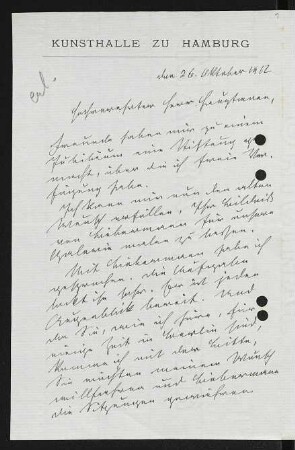 KUNSTHALLE ZU HAMBURG
den 26. Oktober 1912
Hochverehrter Herr Hauptmann,
Freunde haben mir zu einem
Jubiläum eine Stiftung ge-
macht, über die ich freie Ver-
fügung habe.
Ich kann mir nun den alten
Wunsch erfüllen, Ihr Bildnis
von Liebermann für unsere
Galerie malen zu lassen.
Mit Liebermann habe ich
gesprochen. Die Aufgabe
lockt ihn sehr. Er ist jeden
Augenblick bereit. Und
da Sie, wie ich höre, für
einige Zeit in Berlin sind,
komme ich mit der Bitte,
Sie möchten meinem Wunsch
willfahren und Liebermann
die Sitzungen gewähren